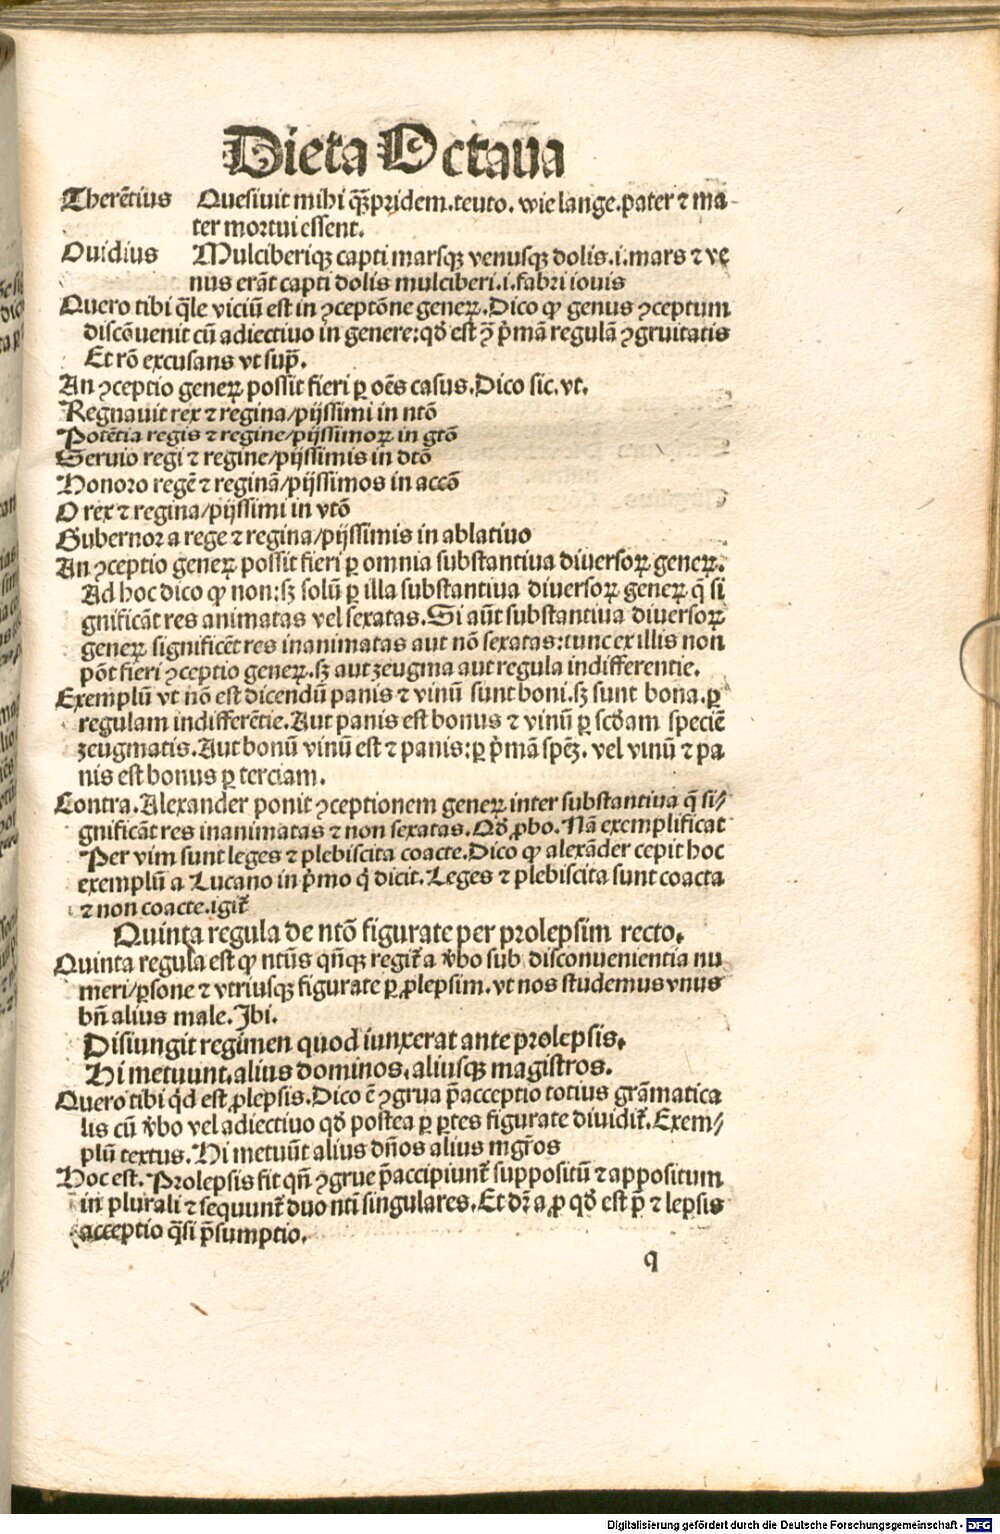 Dieta Octaua
Therẽtius Quesiuit mihi qᷓꝫpridem.teuto. wie lange.pater ⁊ ma-
ter mortui essent.
Ouidius Mulciberiqꝫ capti marsqꝫ venusqꝫ dolis.i.mars ⁊ ve
nus erãt capti dolis mulciberi.i.fabri iouis
Quero tibi q̃le viciũ est in ꝯceptõne generꝝ.Dico ꝙ genus ꝯceptum
discõuenit cũ adiectiuo in genere:qđ est ꝯ̃ p̃mã regulã ꝯgruitatis
Et rõ excusans vt sup̃.
An ꝯceptio generꝝ possit fieri ꝑ oẽs casus.Dico sic.vt.
Regnauit rex ⁊ regina/pijssimi in ntõ
Potẽtia regis ⁊ regine/pijssimoꝝ in gtõ
Seruio regi ⁊ regine/pijssimis in dtõ
Honoro regẽ ⁊ reginã/pijssimos in accõ
O rex ⁊ regina/pijssimi in vtõ
Gubernor a rege ⁊ regina/pijssimis in ablatiuo
An ꝯceptio generꝝ possit fieri ꝑ omnia substantiua diuersoꝝ generꝝ.
Ad hoc dico ꝙ non:sꝫ solũ ꝑ illa substantiua diuersoꝝ generꝝ q̃ si
gnificãt res animatas vel sexatas.Si aũt substantiua diuersoꝝ
generꝝ significẽt res inanimatas aut nõ sexatas:tunc ex illis non
põt fieri ꝯceptio generꝝ.sꝫ aut zeugma aut regula indifferentie.
Exemplũ vt nõ est dicendũ panis ⁊ vinũ sunt boni.sꝫ sunt bona.ꝑ
regulam indifferẽtie.Aut panis est bonus ⁊ vinũ ꝑ scđam speciẽ
zeugmatis.Aut bonũ vinũ est ⁊ panis:ꝑ p̃mã spẽꝫ. vel vinũ ⁊ pa
nis est bonus ꝑ terciam.
Contra.Alexander ponit ꝯceptionem generꝝ inter substantiua q̃ si/
gnificãt res inanimatas ⁊ non sexatas.Qđ ꝓbo.Nã exemplificat
Per vim sunt leges ⁊ plebiscita coacte.Dico ꝙ alexãder cepit hoc
exemplũ a Lucano in p̃mo q̇ dicit.Leges ⁊ plebiscita sunt coacta
⁊ non coacte.igit᷑
Quinta regula de ntõ figurate per prolepsim recto.
Quinta regula est ꝙ ntũs qñqꝫ regit᷑ a ṽbo sub disconuenientia nu
meri/ꝑsone ⁊ vtriusqꝫ figurate ꝑ ꝓlepsim.vt nos studemus vnus
bñ alius male.Ibi.
Disiungit regimen quod iunxerat ante prolepsis.
Hi metuunt.alius dominos.aliusqꝫ magistros.
Quero tibi qͥd est ꝓlepsis.Dico ẽ ꝯgrua p̃acceptio totius grãmatica
lis cũ ṽbo vel adiectiuo qđ postea ꝑ ꝑtes figurate diuidit᷑.Exem/
plũ textus.Hi metuũt alius dños alius mgr̃os
Hoc est.Prolepsis fit qñ ꝯgrue p̃accipiunt᷑ suppositũ ⁊ appositum
in plurali ⁊ sequunt᷑ duo nti singulares.Et dr̃ a ꝓ qđ est p̃ ⁊ lepsis
acceptio q̃si p̃sumptio.
q
Digitalisierung gefördert durch die Deutsche Forschungsgemeinschaft - DFG